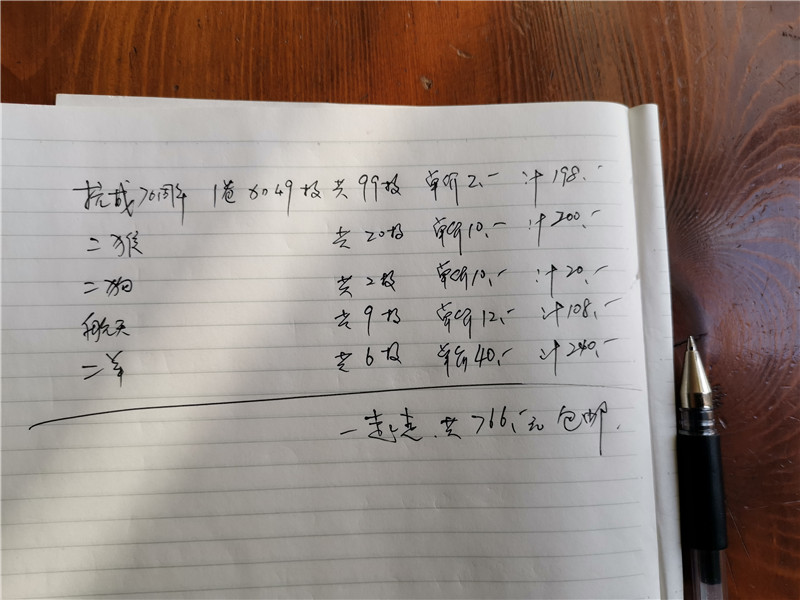 抗战70周年 1卷加49枚 共99枚 单价2.- 计198.-
二猴 共20枚 单价10.- 计200.-
二狗 共2枚 单价10.- 计20.-
航天 共9枚 单价12.- 计108.-
二羊 共6枚 单价40.- 计240.-
一走 共766.-元 包邮.